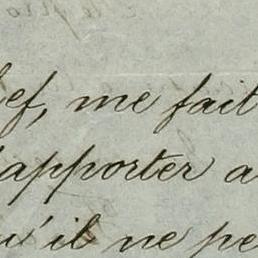 ef, me fait
'apporter a
u'il ne pe